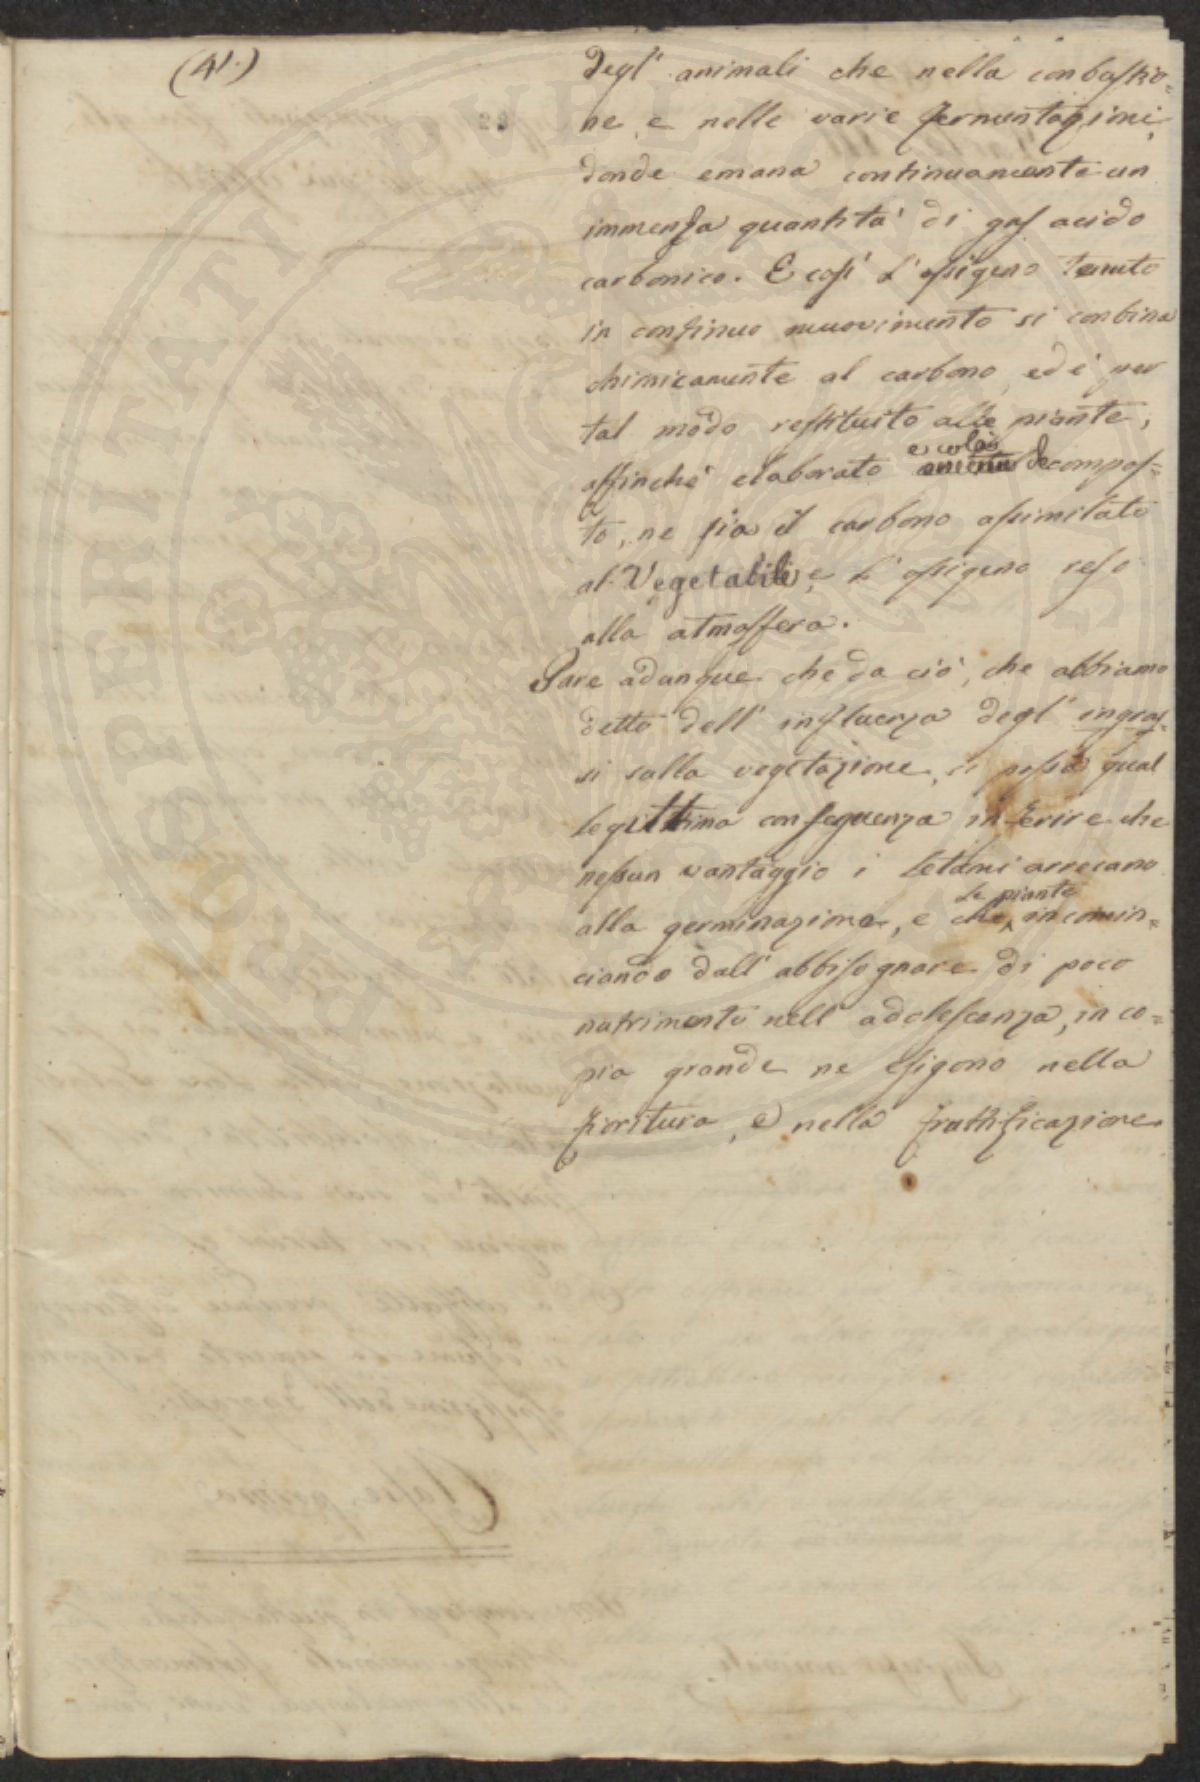 (41.)
degl' animali che nella conbustio=
ne, e nelle varie fermentazioni,
donde emana continuamente un
immensa quantita' di gas acido
carbonico. E cosi' l'ossigeno tenuto
in continuo muovimento si conbina
chimicamente al carbono, ed è per
tal modo restituito alle piante,
affinche' elaborato e colà decompos=
to, ne sia il carbono assimilato
al Vegetabile, e l'ossigeno reso
alla atmosfera.
Pare adunque che da ciò, che abbiamo
detto dell' influenza degl' ingras=
si sulla vegetazione, si possa qual
legittima conseguenza inferire che
nessun vantaggio i letami arrecano
alla germinazione, e che le piante incomin=
ciando dall' abbisognare di poco
nutrimento nell' adolescenza, in co=
pia grande ne esigono nella
fioritura, e nella fruttificazione
PROSPERITATI PVBLICAE